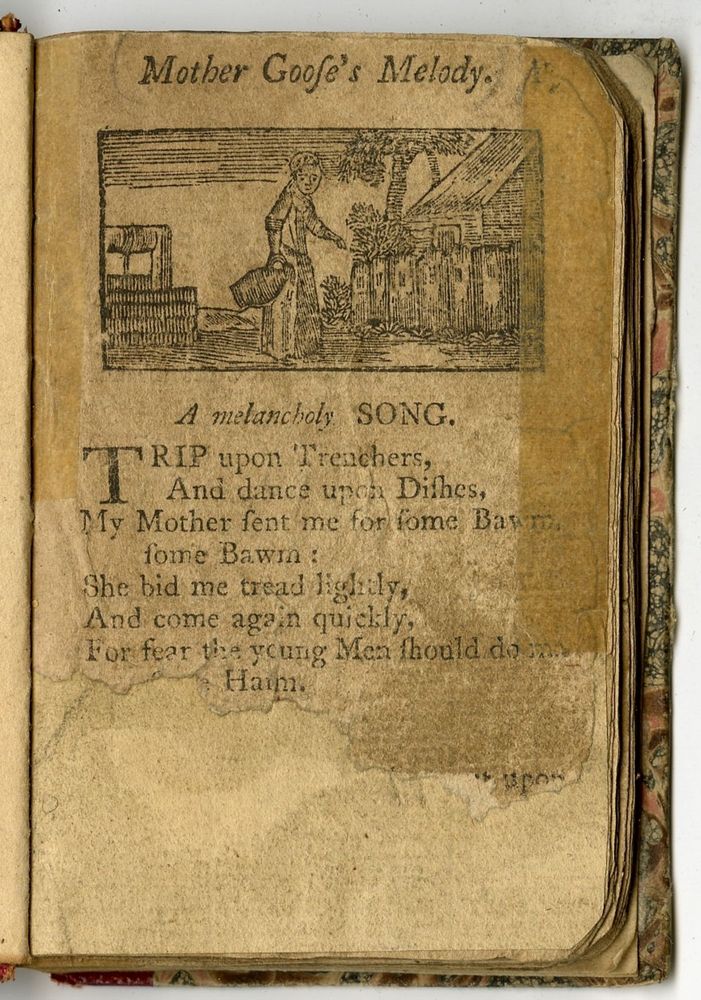 Mother Gooſe's Melody.
A melancholy SONG.
TRIP upon Trenchers,
And dance upon Diſhes,
My Mother ſent me for ſome Bawm,
ſome Bawm :
She bid me tread lightly,
And come again quickly,
For fear the young Men ſhould do me
Harm.
upon